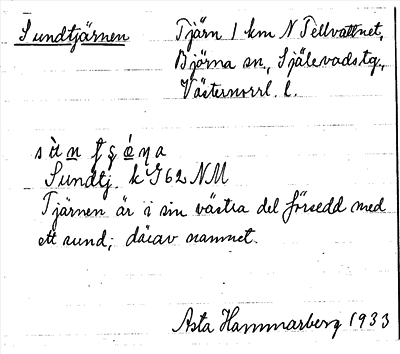 Sundtjärnen
Tjärn 1 km N Tellvattnet,
Björna sn, Själevads tg.,
Västernorrl. l.
Sundtj. k G62 NM
Tjärnen är i sin västra del försedd med
ett sund; därav namnet.
Asta Hammarberg 1933